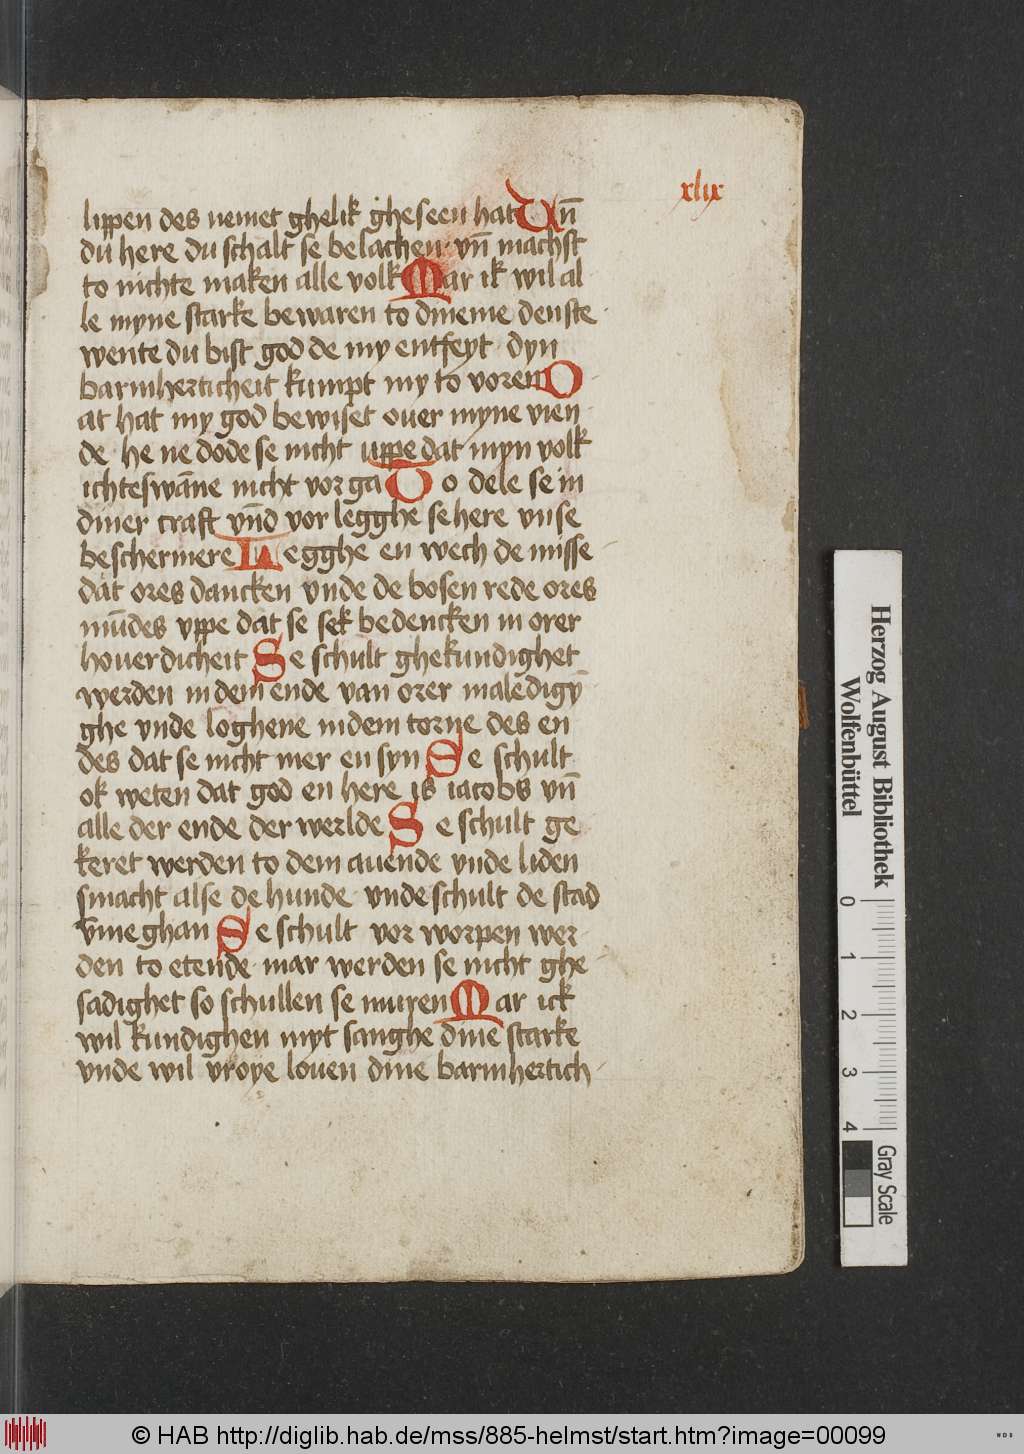 xlix
lippen des nemet ghelik gheseen hat Vn̄
du here du schalt se belachen · vn̄ machst
to nichte maken alle volk Mar ik wil al
le myne starke bewaren to dineme denste
wente du bist god de my entfeyt · dyn
barmherticheit kumpt my to voren O
at hat my god bewiset ouer myne vien
de · he ne dode se nicht uppe dat myn volk
ichteswāne nicht vorga To dele se in
diner craft vn̄d vor legghe se here vnse
beschermere Legghe en wech de misse
dat ores dancken vnde de bosen rede ores
mūdes vppe dat se sek bedencken in orer
houerdicheit Se schult ghekundighet
werden in dem ende van orer maledigy̅
ghe vnde loghene in dem torne des en
des dat se nicht mer en syn Se schult
ok weten dat god en here is iacobs vn̄
alle der ende der werlde Se schult ge
keret werden to dem auende vnde liden
smacht alse de hunde · vnde schult de stad
vme ghan Se schult vor worpen wer
den to etende · mar werden se nicht ghe
sadighet so schullen se murren Mar ick
wil kundighen myt sanghe dine starke
vnde wil vroye louen dine barmhertich
Herzog August Bibliothek
Wolfenbüttel
0 1 2 3 4
Gray Scale
© HAB http://diglib.hab.de/mss/885-helmst/start.htm?image=00099